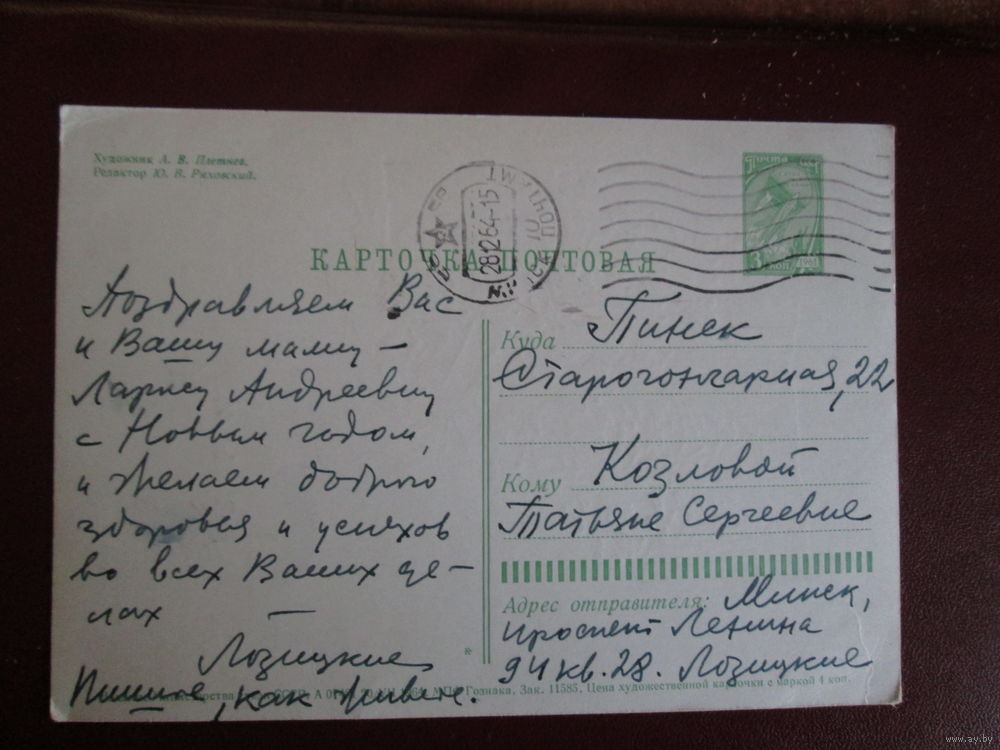 Художник А. В. Плетнев.
Редактор Ю. В. Ряховский.
Почта
3 коп 1961
28 12 64-15
КАРТОЧКА ПОЧТОВАЯ
Поздравляем Вас
и Вашу маму –
Ларису Андреевну
с Новым годом,
и желаем доброго
здоровья и успехов
во всех Ваших де–
лах —
Лозицкие
Пишите, как живете.
Куда Пинск
Старогончарная, 22
Кому Козловой
Татьяне Сергеевне
Адрес отправителя: Минск,
проспект Ленина
94 кв. 28. Лозицкие
Гознака. Зак. 11585. Цена художественной карточки с маркой 4 коп.
www.ay.by